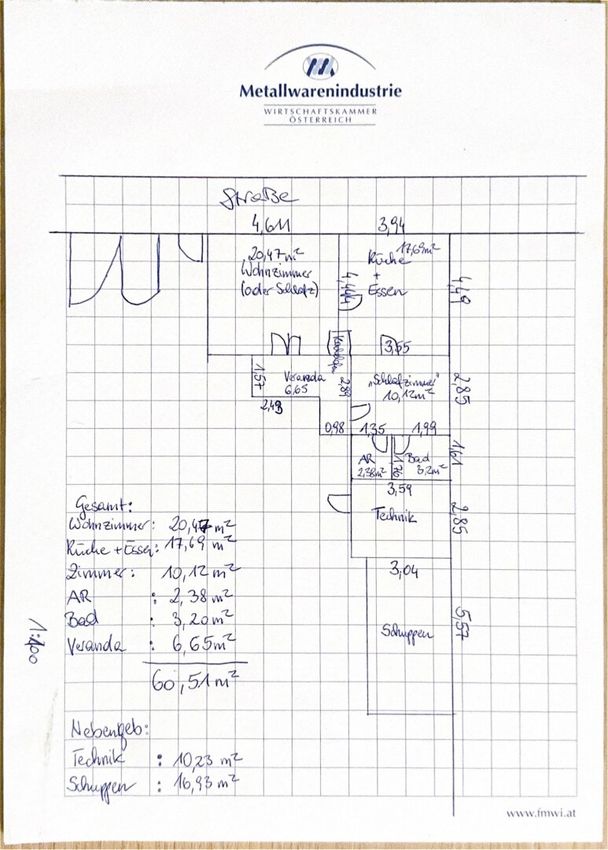 Metallwarenindustrie
WIRTSCHAFTSKAMMER
ÖSTERREICH
Straße
4,611
3,94
20,47 m²
Wohnzimmer
(oder Schlafz)
4,444
17,69m²
Küche
+
Essen
4,49
3,55
1,57
Veranda
6,65
2,49
2,89
"Schlafzimmer"
10,12m²
2,85
0,98
1,35
1,99
AR
2,38m²
1,76
Bad
3,2m²
1,61
3,59
Technik
2,85
3,04
Schuppen
5,57
Gesamt:
Wohnzimmer: 20,47 m²
Küche + Essen: 17,69 m²
Zimmer: 10,12 m²
AR : 2,38 m²
Bad : 3,20 m²
Veranda : 6,65 m²
60,51 m²
1:100
Nebengeb:
Technik : 10,23 m²
Schuppen : 16,93 m²
www.fmwi.at